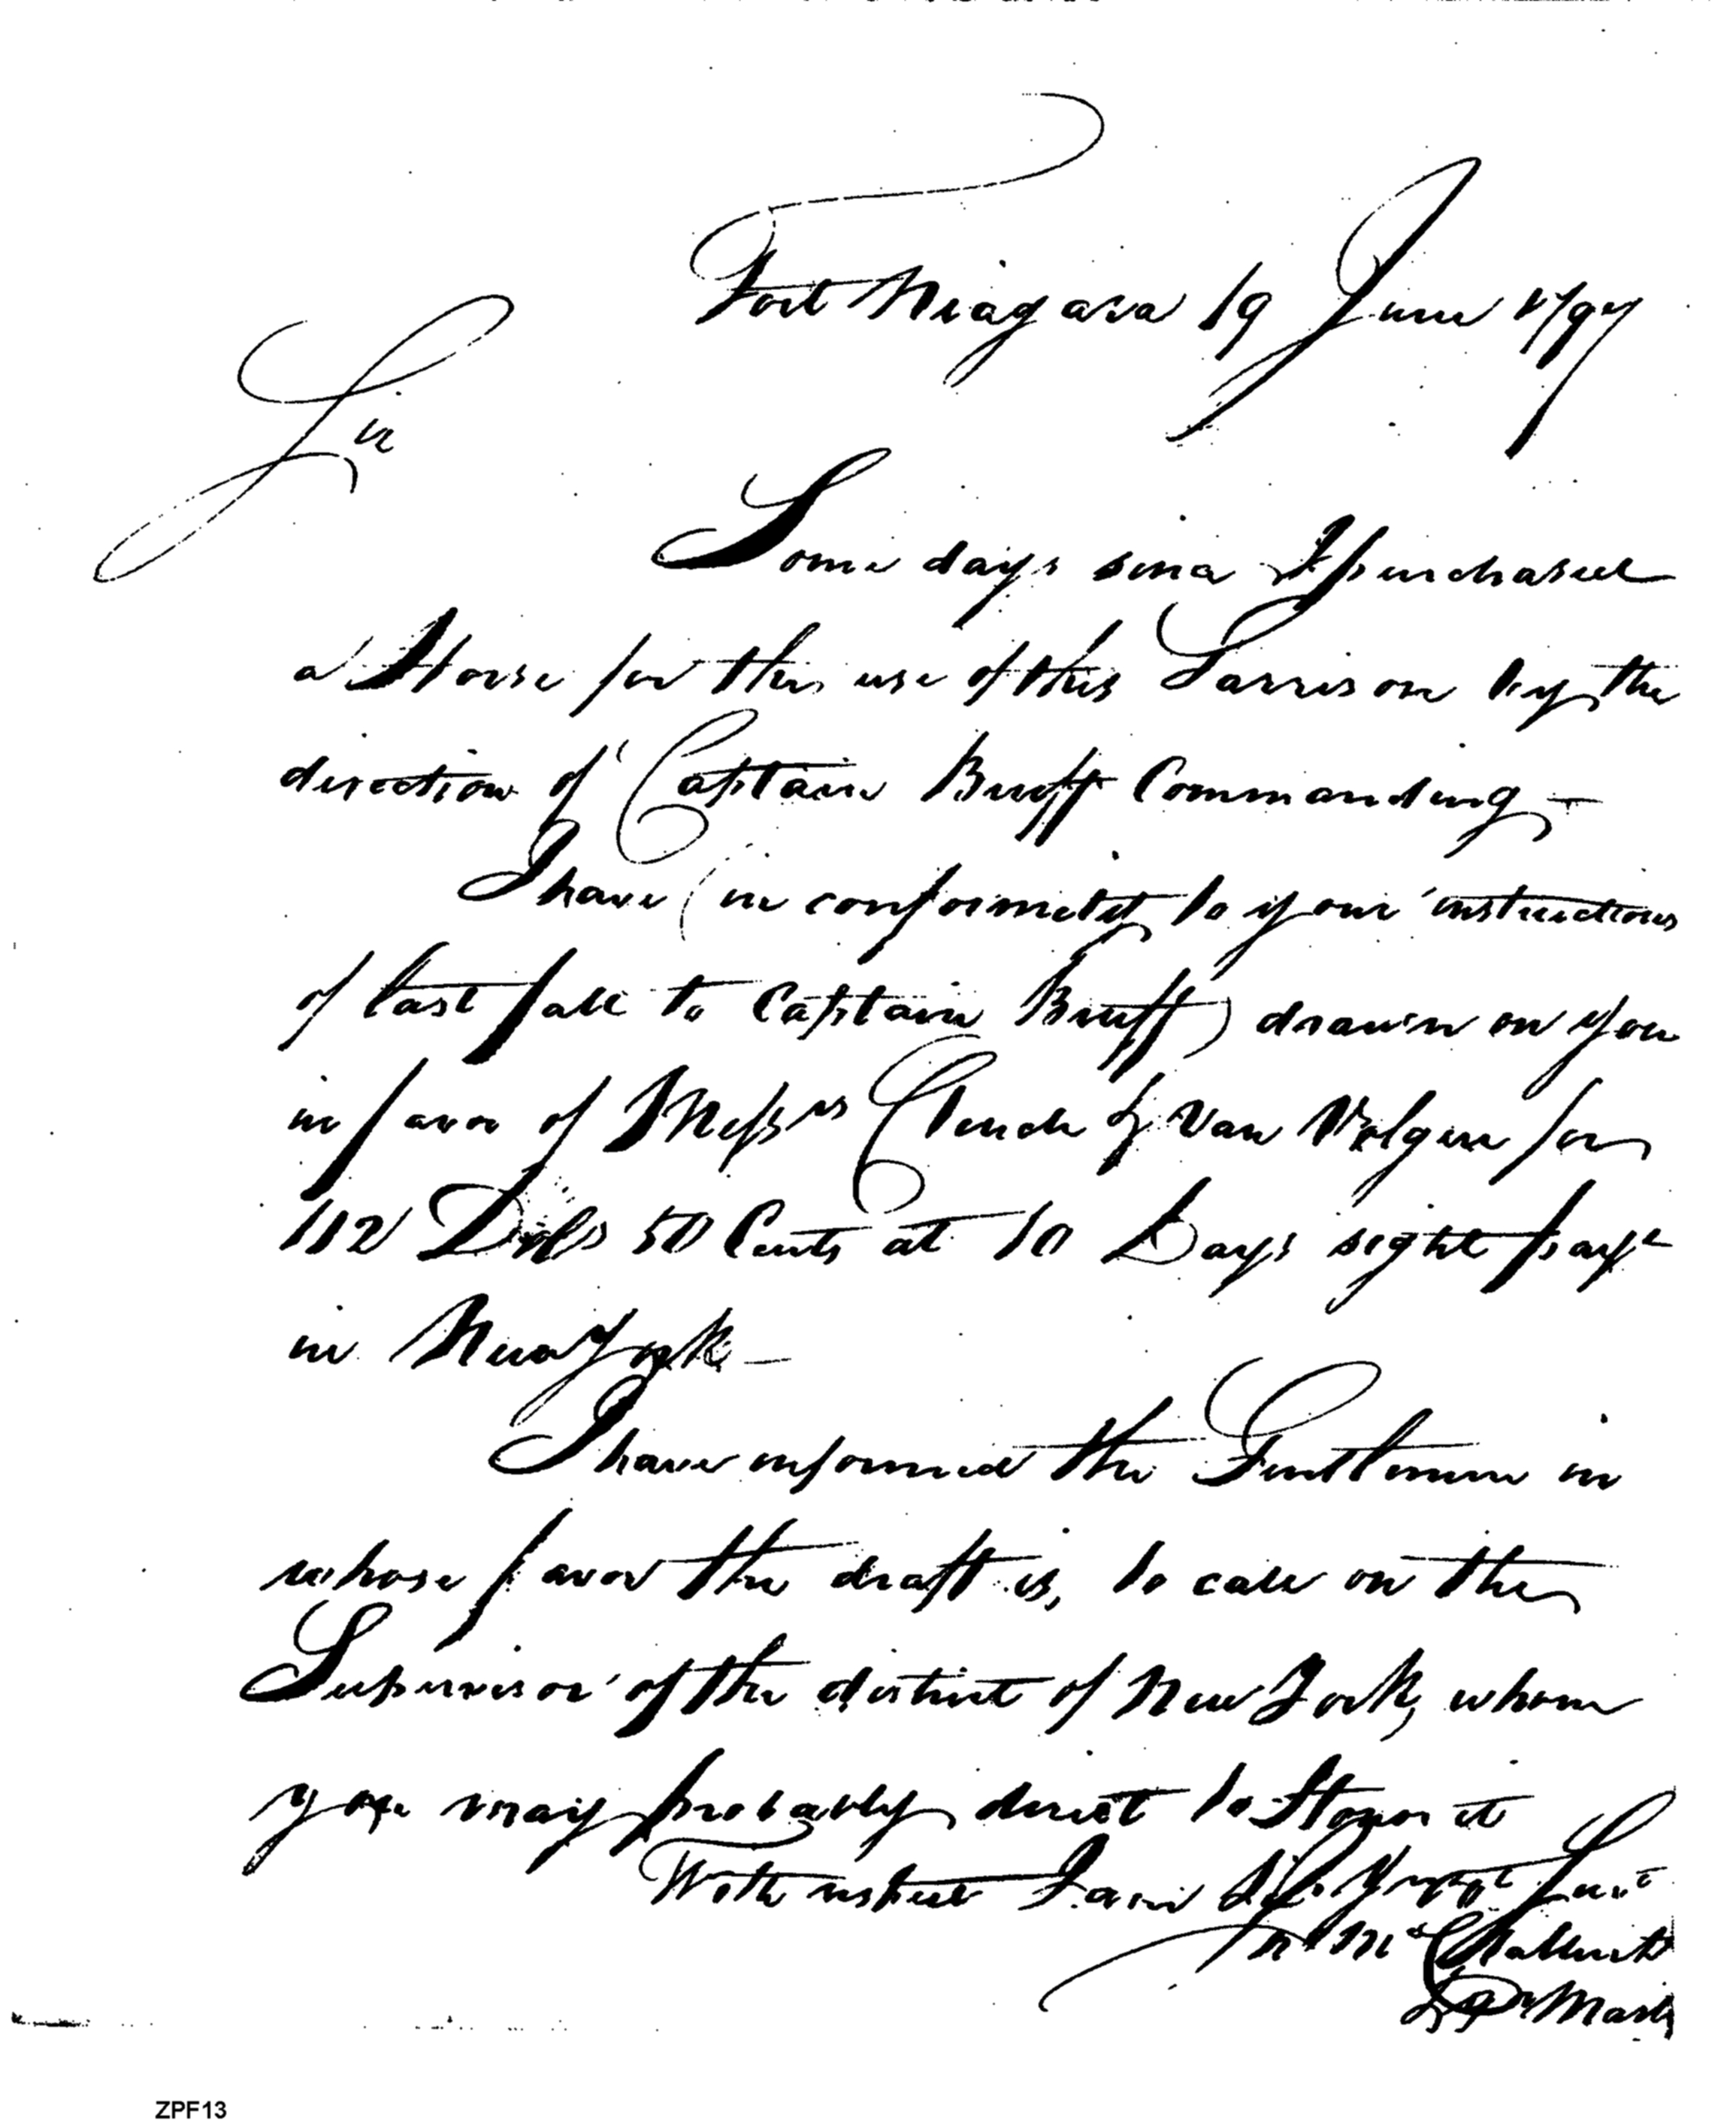 Fort Niagara 19 June 1797
Sir
Some days since I purchased
a Horse for the use of this Garrison by the
direction of Captain Bruff Commanding –
I have (in conformity to your instructions
of last fall to Captain Bruff) drawn on you
in favor of Messrs Clench & Van Volgen for
112 Dolls 50 Cents at 10 Days sight paye
in New York –
I have informed the Gentlemen in
whose favor the draft is, to call on the
Supervisor of the district of New York, whom
you may probably direct to Honor it
With respect I am Sir Yr
Jn Mc Clallen Lt
Qr Mastr
ZPF13